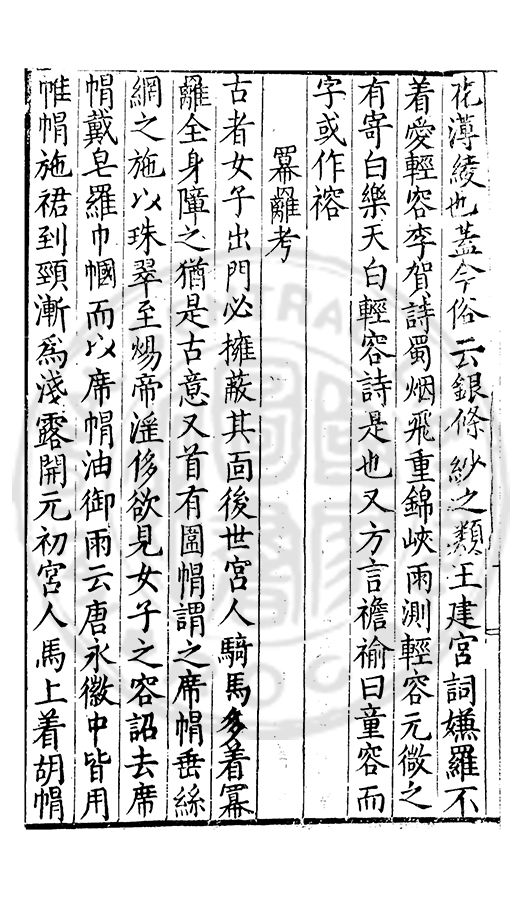 花薄綾也蓋今俗云銀條紗之類王建宮詞嫌羅不
着愛輕容李賀詩蜀烟飛重錦峽雨測輕容元微之
有寄白樂天白輕容詩是也又方言襜褕曰童容而
字或作褣
冪䍦考
古者女子出門必擁蔽其面後世宮人騎馬多着冪
䍦全身障之猶是古意又首有圍帽謂之席帽垂絲
網之施以珠翠至煬帝滛侈欲見女子之容詔去席
帽戴皂羅巾幗而以席帽油御雨云唐永徽中皆用
帷帽施裙到頸漸爲淺露開元初宮人馬上着胡帽